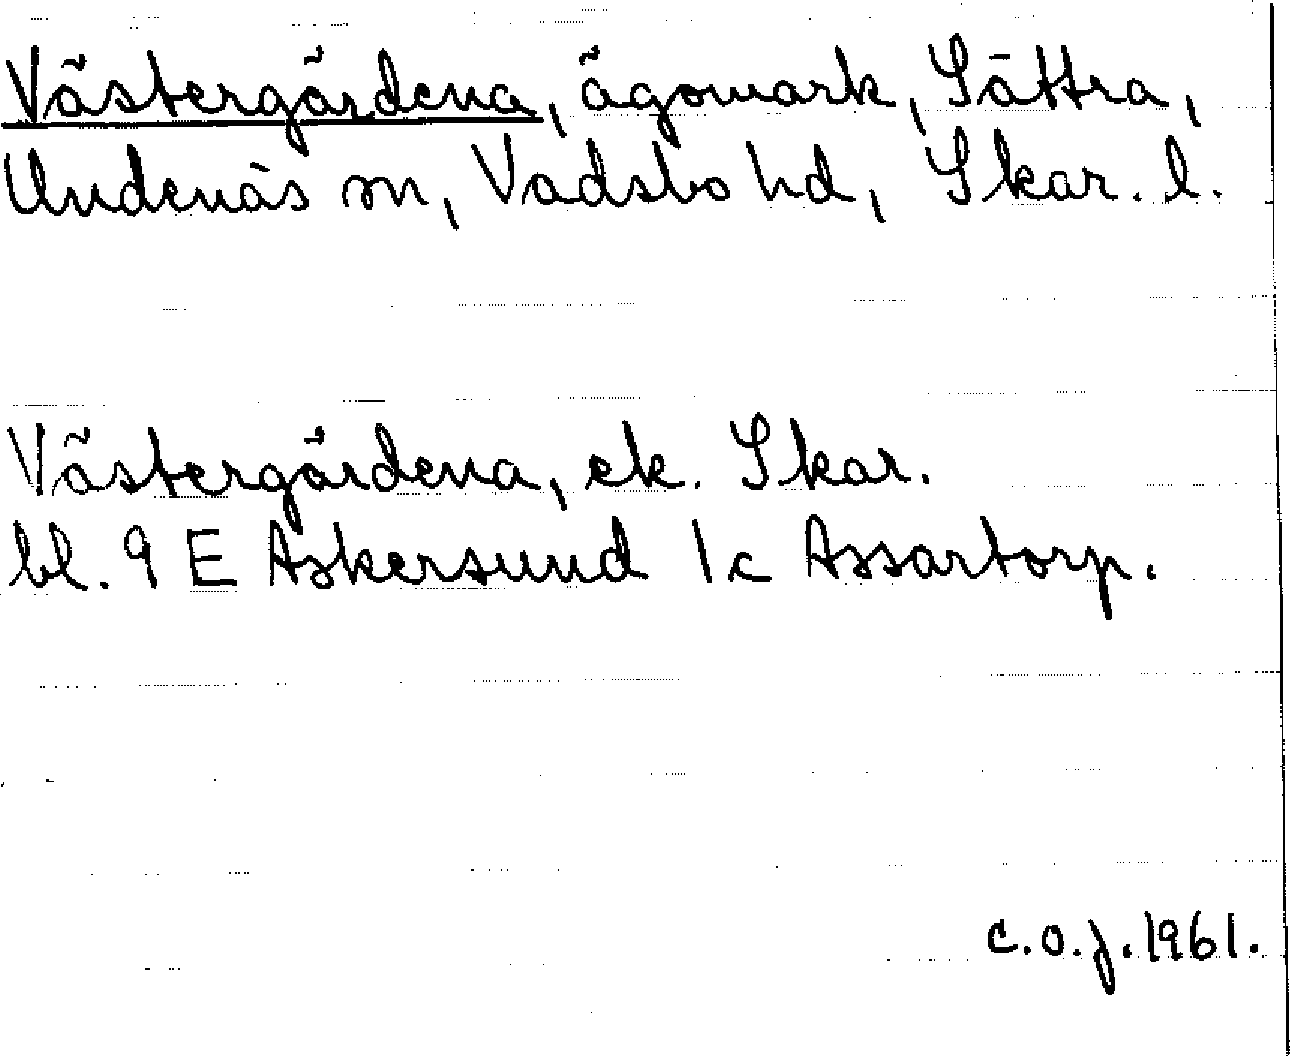 Västergårdena, ägomark, Sätra,
Undenäs sn, Vadsbo hd, Skar. l.
Västergårdena, ek. Skar.
bl. 9 E Askersund 1c Assartorp.
c.o.j. 1961.